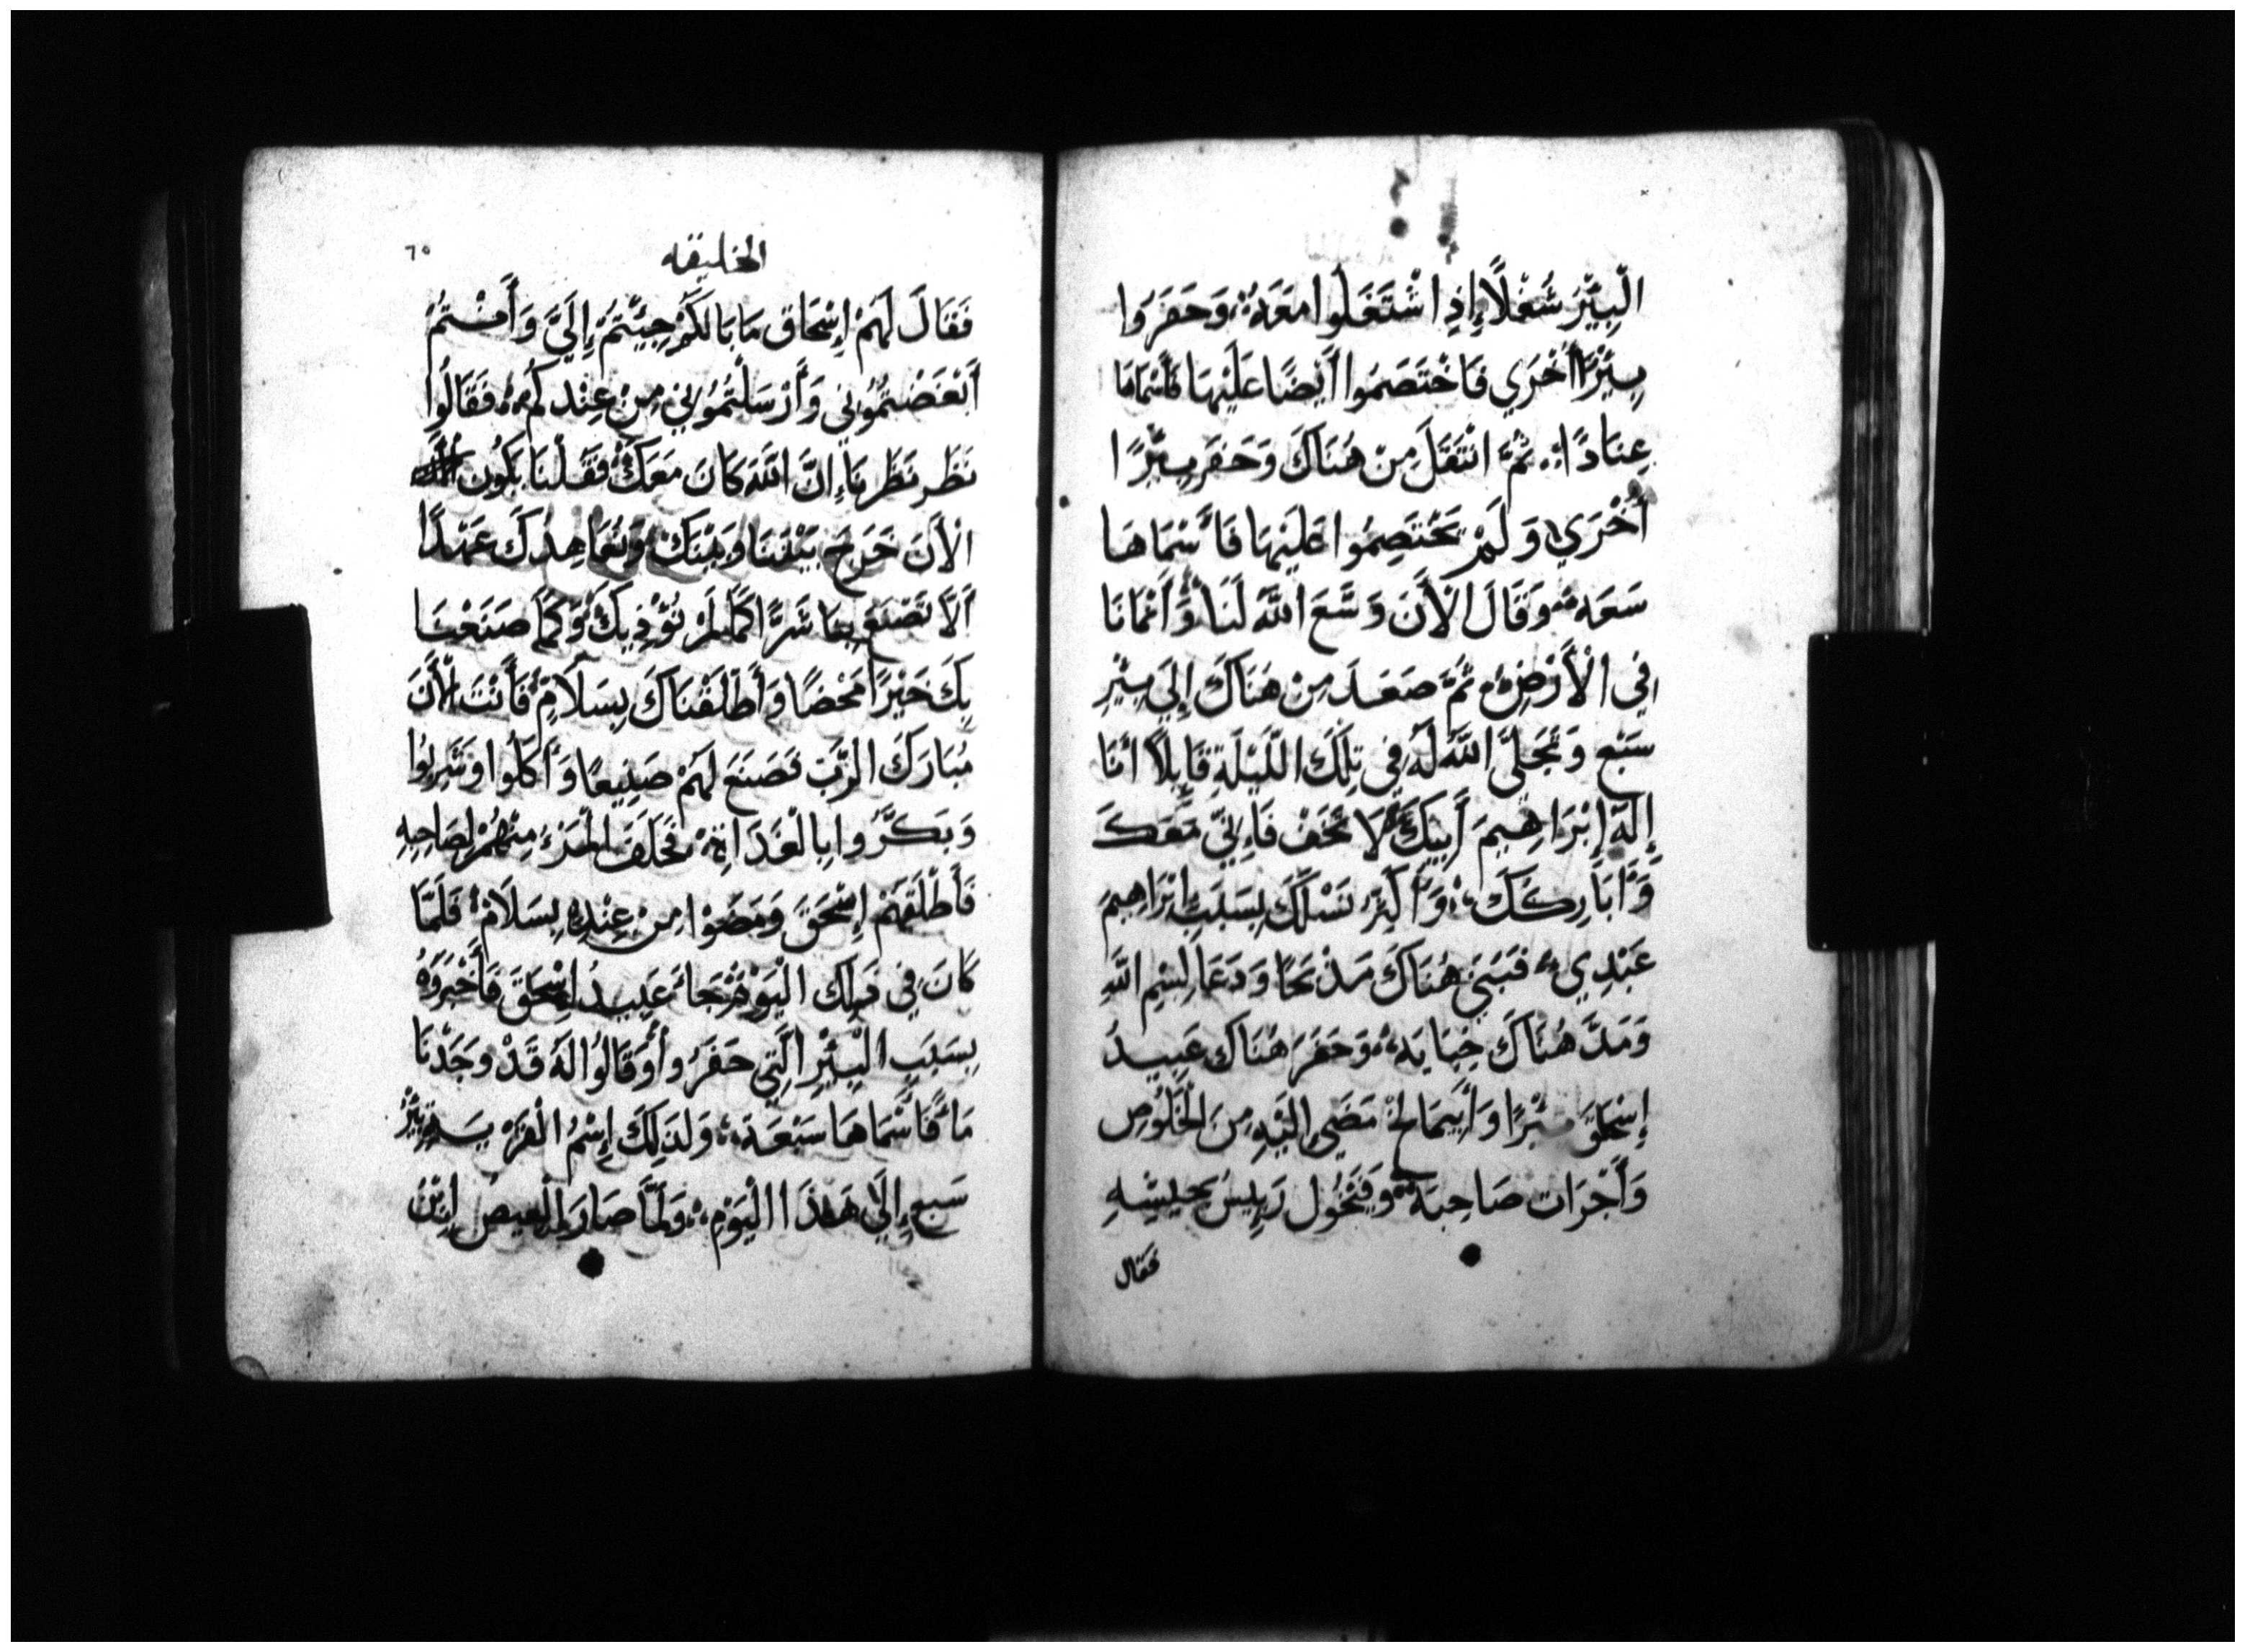 الْبِيْرَ شُغْلًا إِذِ اشْتَغَلُوا مَعَهُ وَحَفَرُوا
بِيْرًا أُخْرَي فَاخْتَصَمُوا أَيْضًا عَلَيْهَا فَأَسْمَاهَا
عِنَادًا ثُمَّ انْتَقَلَ مِنْ هُنَاكَ وَحَفَرَ بِيْرًا
أُخْرَي وَلَمْ يَخْتَصِمُوا عَلَيْهَا فَأَسْمَاهَا
سَعَه وَقَالَ الْأَنَ وَسَّعَ اللَّهُ لَنَا وَأَنْمَانَا
فِي الْأَرْضِ ثُمَّ صَعَدَ مِنْ هُنَاكَ إِلَي بِيْرِ
سَبْع وَتَجَلَّي اللَّهُ لَهُ فِي تِلْكَ اللَّيْلَةِ قَايِلًا أَنَا
إِلَهُ إِبْرَاهِيمَ أَبِيكَ لَا تَخَفْ فَإِنِّي مَعَكَ
وَأُبَارِكُكَ وَأُكَثِّرُ نَسْلَكَ بِسَبَبِ إِبْرَاهِيمَ
عَبْدِي فَبَنَي هُنَاكَ مَذْبَحًا وَدَعَا بِسْمِ اللَّهِ
وَمَدَّ هُنَاكَ خِبَايَه وَحَفَرَ هُنَاكَ عَبِيدُ
إِسْحَاقَ بِيْرًا وَأَبِيمَالِخْ مَضَي إِلَيْهِ مِنَ الْخَلُوصِ
وَأَخْزَات صَاحِبَهُ وَفِيخُول رَيِيسُ جَيشِهِ
فقال
الخليقه
٦٥
فَقَالَ لَهُمْ إِسْحَاق مَا بَالَكُمْ جِيْتُمْ إِلَيَّ وَأَنْتُمْ
أَبْغَضْتُمُونِي وَأَرْسَلْتُمُونِي مِنْ عِنْدِكُم فَقَالُوا
نَظَر نَظَرْنَا إِنَّ اللَّهَ كَانَ مَعَكَ فَقُلْنَا يَكُون
الْأَنَ حَرَج بَيْنَنَا وَبَيْنَكَ وَنُعَاهِدُكَ عَهْدًا
أَلَّا تَصْنَعَ بِنَا شَرًّا كَمَا لَمْ نُؤْذِيكَ وَكَمَا صَنَعْنَا
بِكَ خَيْرًا مَحْضًا وَأَطْلَقْنَاكَ بِسَلَامٍ فَأَنْتَ الْأَنَ
مُبَارَكَ الرَّبِّ فَصَنَعَ لَهُمْ صَنِيعًا وَأَكَلُوا وَشَرِبُوا
وَبَكَّرُوا بِالْغَدَاةِ فَحَلَفَ الْمَرْءُ مِنْهُمْ لِصَاحِبِهِ
فَأَطْلَقَهُمْ إِسْحَقَ وَمَضَوْا مِنْ عِنْدِهِ بِسَلَامْ فَلَمَّا
كَانَ فِي ذَلِكَ الْيَوْمِ جَاءَ عَبِيدُ إِسْحَقَ فَأَخْبَرُوهُ
بِسَبَبِ الْبِيْرِ الَّتِي حَفَرُوا وَقَالُوا لَهُ قَدْ وَجَدْنَا
مَاءً فَأَسْمَاهَا سَبْعَه وَلِذَلِكَ إِسْمُ الْقَرْيَه بِيْرُ
سَبع إِلَي هَذَا الْيَوْمِ وَلَمَّا صَارَ لِلْعِيص إِبْنَ